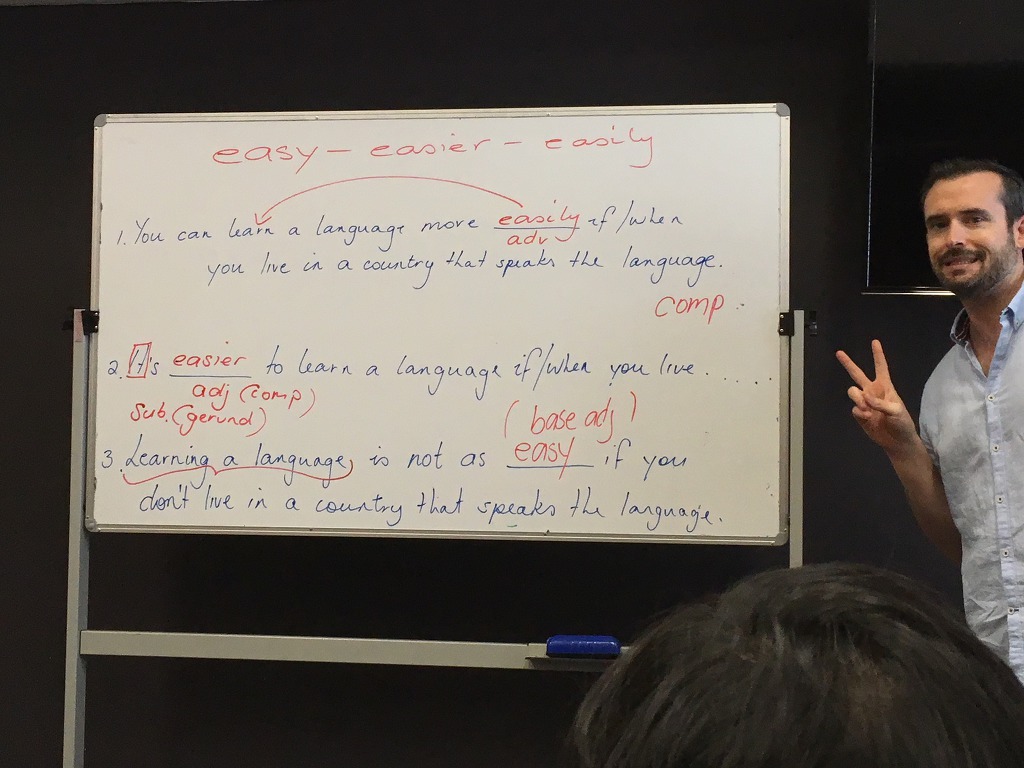 easy - easier - easily
1. You can learn a language more easily if/when
adv
you live in a country that speaks the language.
comp.
2. It's easier to learn a language if/when you live......
adj (comp)
sub. (gerund)
(base adj)
3. Learning a language is not as easy if you
don't live in a country that speaks the language.